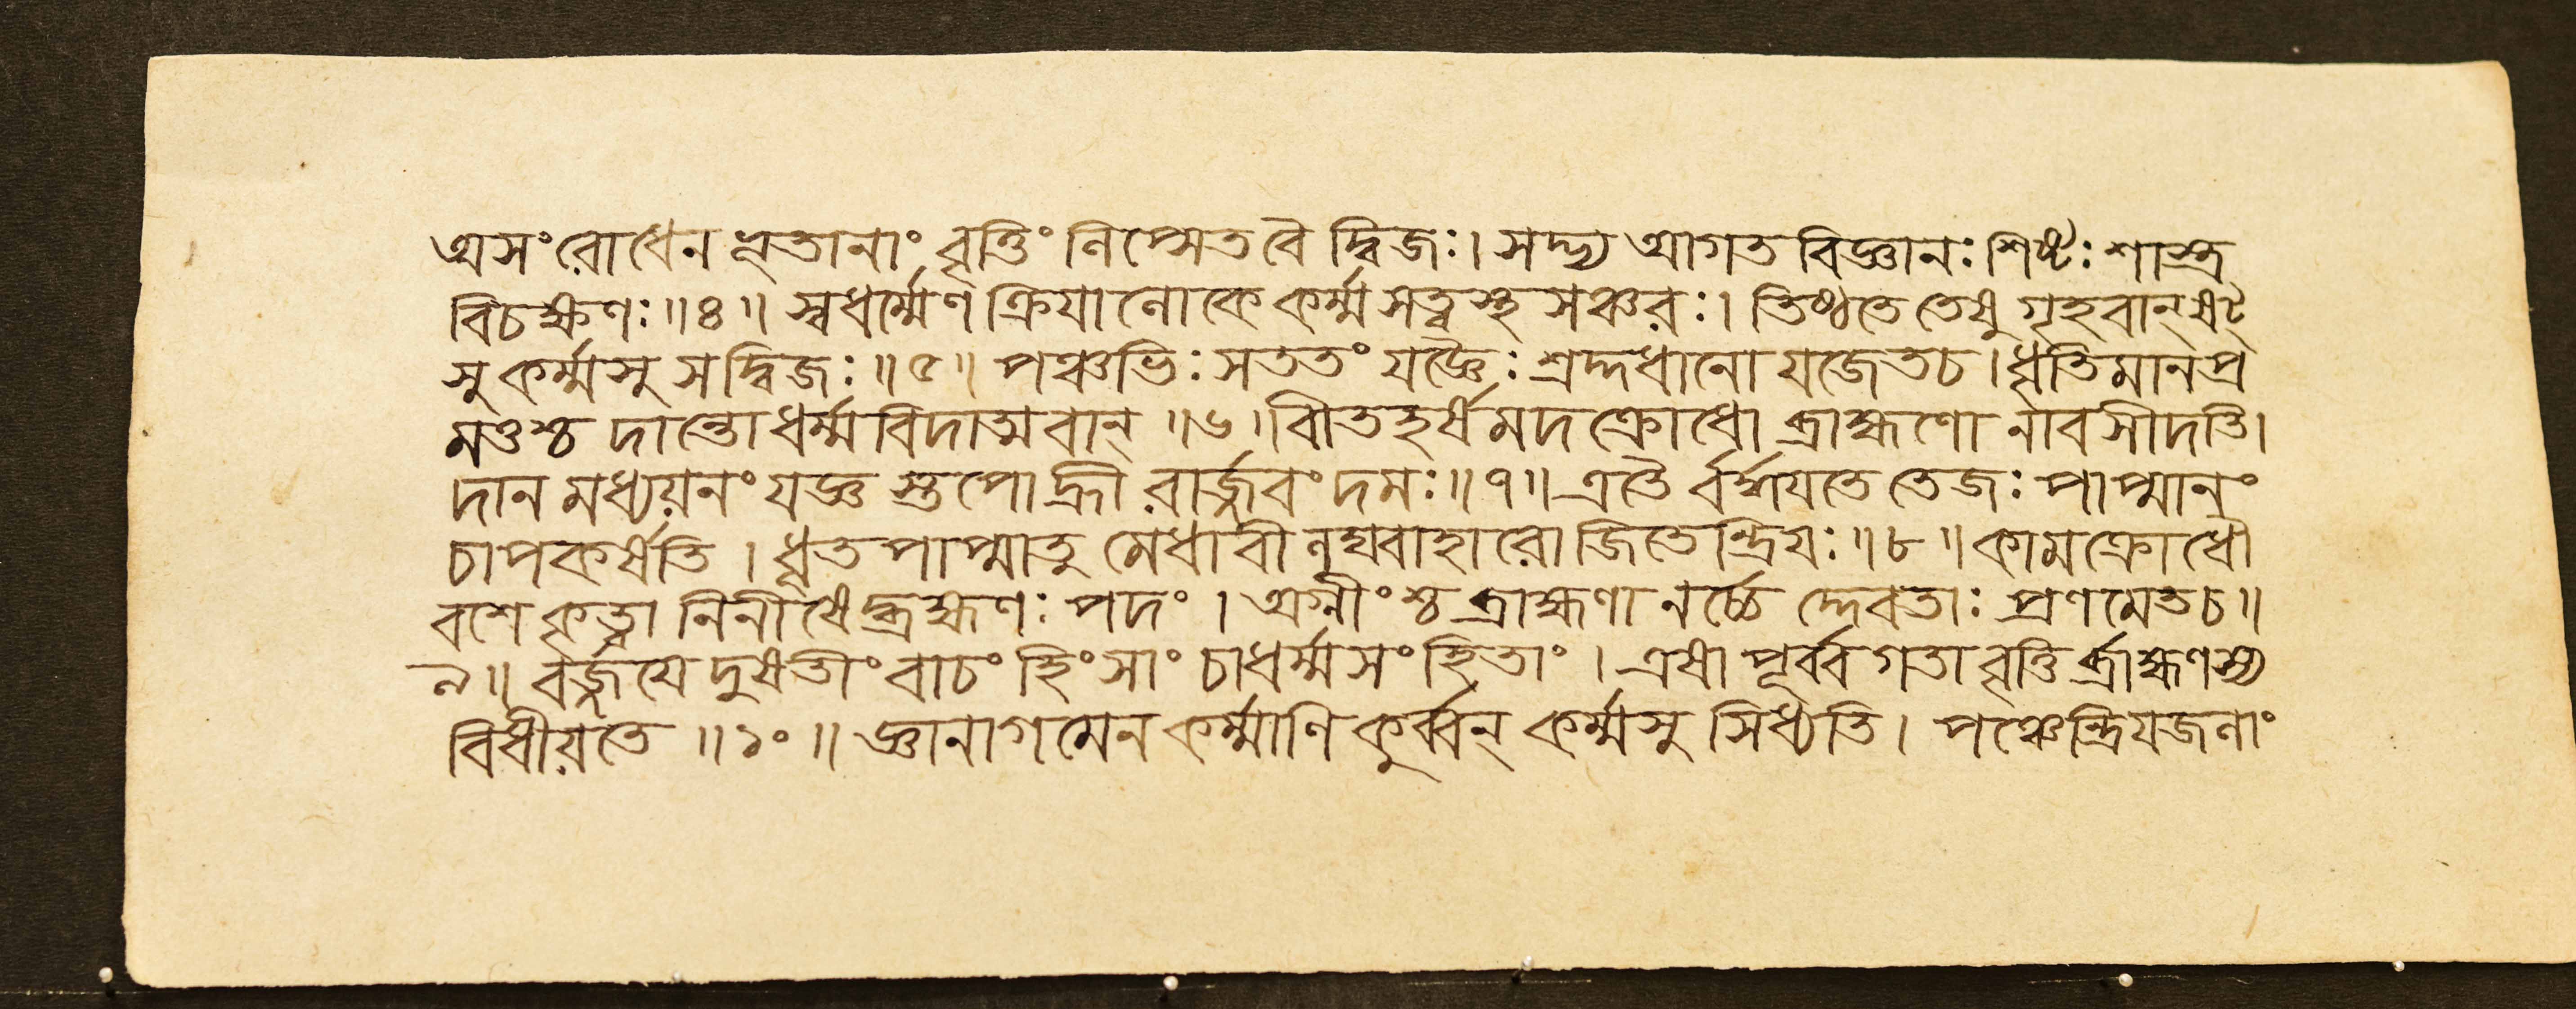 অসংরোধেন ভূতানাং বৃত্তিং লিপ্সেত বৈ দ্বিজঃ। সদ্ভ্য আগত বিজ্ঞানঃ শিষ্টঃ শাস্ত্র
বিচক্ষণঃ॥৪॥ স্বধর্ম্মেণ ক্রিয়ালোকে কর্ম্ম সত্ত্বস্থ সঞ্চরঃ। তিষ্ঠতে তেষু গৃহবান্ ষট্
সু কর্ম্মসু স দ্বিজঃ॥৫॥ পঞ্চভিঃ সততং যজ্ঞৈঃ শ্রদ্দধানো যজেত চ। ধৃতিমানপ্র
মত্তশ্চ দান্তো ধর্ম্মবিদাত্মবান্॥৬। বীতহর্ষমদক্রোধো ব্রাহ্মণো র্নাবসীদতি।
দানমধ্যয়নং যজ্ঞস্তপো হ্রীরার্জ্জবং দমঃ॥৭॥ এতৈর্ব্বর্দ্ধয়তে তেজঃ পাপ্মানং
চাপকর্ষতি। ধূতপাপ্মাতু মেধাবী লঘ্বাহারো জিতেন্দ্রিয়ঃ॥৮॥ কামক্রোধৌ
বশে কৃত্বা নিনীষেদ্ব্রহ্মণঃ পদং। অগ্নীংশ্চ ব্রাহ্মণানর্চ্চে দ্দেবতাঃ প্রণমেত চ॥
৯॥ বর্জ্জয়েদুষতীং বাচং হিংসাং চাধর্ম্মসংহিতাং। এষা পূর্ব্বগতা বৃত্তির্ব্রাহ্মণস্য
বিধীয়তে॥১০॥ জ্ঞানাগমেন কর্ম্মাণি কুর্ব্বন্ কর্ম্মসু সিধ্যতি। পঞ্চেন্দ্রিয়জলাং